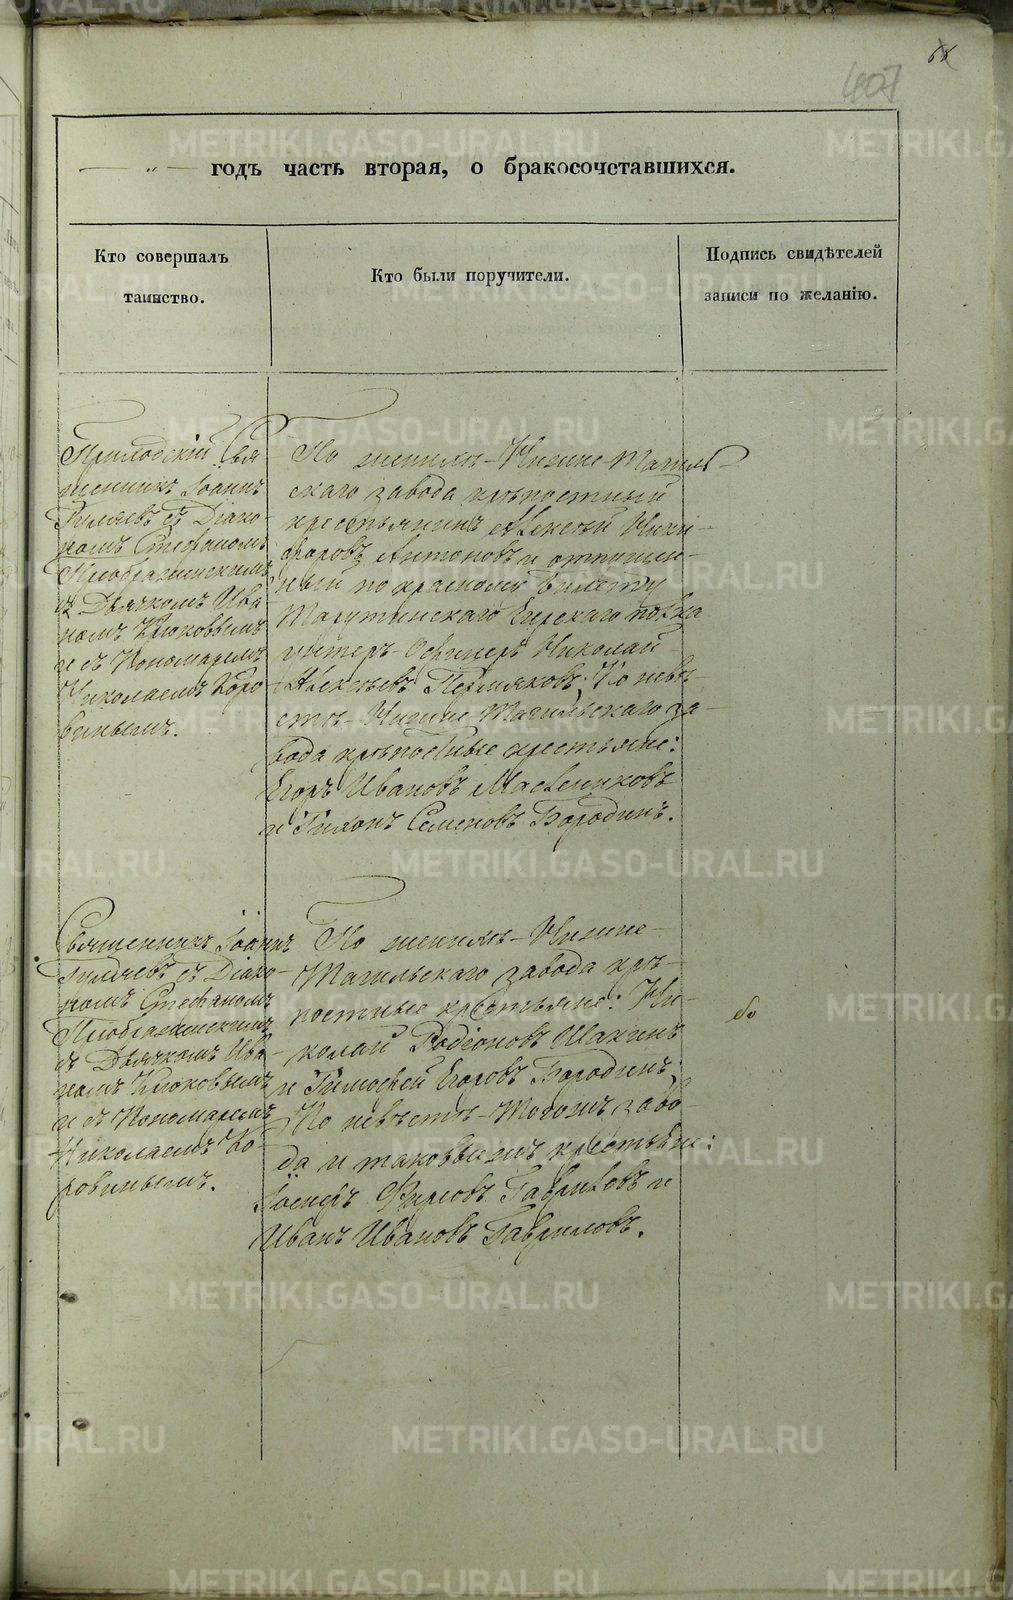 407
годъ часть вторая, о бракосочетавшихся.
Кто совершалъ
таинство.
Кто были поручители.
Подпись свидѣтелей
записи по желанію.
Приходскій Свя
щенникъ Іоаннъ
съ Діако-
номъ Стефаномъ
Преображенскимъ
съ Дьячкомъ Ива
номъ Крюковымъ
и съ Пономаремъ
Николаемъ Коро
винымъ.
По женихѣ - Нижне-Тагиль-
скаго завода крѣпостный
крестьянинъ Алексѣй Ники-
форовъ Антоновъ и отпущен-
ный по красному билету
Тарутинскаго Егерскаго полка
унтеръ-Офицеръ Николай
Алексѣевъ Пермяковъ; По невѣ-
стѣ - Нижне Тагильскаго за-
вода крѣпостные крестьяне:
Егоръ Ивановъ Масленниковъ
и Тихонъ Семеновъ Бородинъ.
Священникъ Іоаннъ
съ Діако-
номъ Стефаномъ
Преображенскимъ
съ Дьячкомъ Ива-
номъ Крюковымъ
и съ Пономаремъ
Николаемъ Ко-
ровинымъ.
По женихѣ - Нижне-
Тагильскаго завода крѣ-
постные крестьяне: Ни-
колай Родіоновъ Шакинъ
и Тимофей Егоровъ Бородинъ;
По невѣстѣ - Тогожъ заво-
да и таковыежъ крестьяне:
Іосифъ Фирсовъ Гавриловъ и
Иванъ Ивановъ Гавриловъ.
METRIKI.GASO-URAL.RU